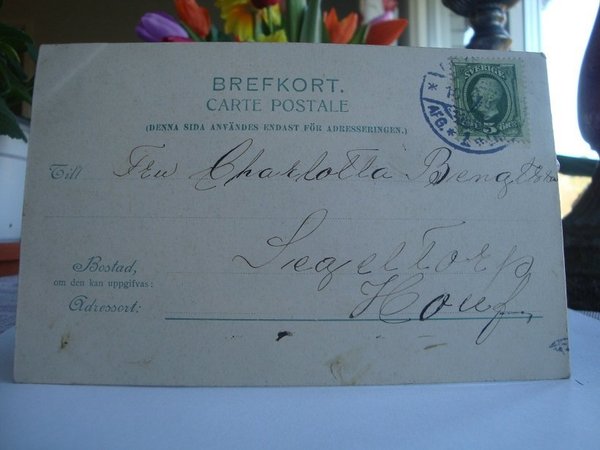 BREFKORT.
CARTE POSTALE
(DENNA SIDA ANVÄNDES ENDAST FÖR ADRESSERINGEN.)
SVERIGE
5
AFG.
Till Fru Charlotta
Segeltorp
Bostad,
om den kan uppgifvas:
Adressort: